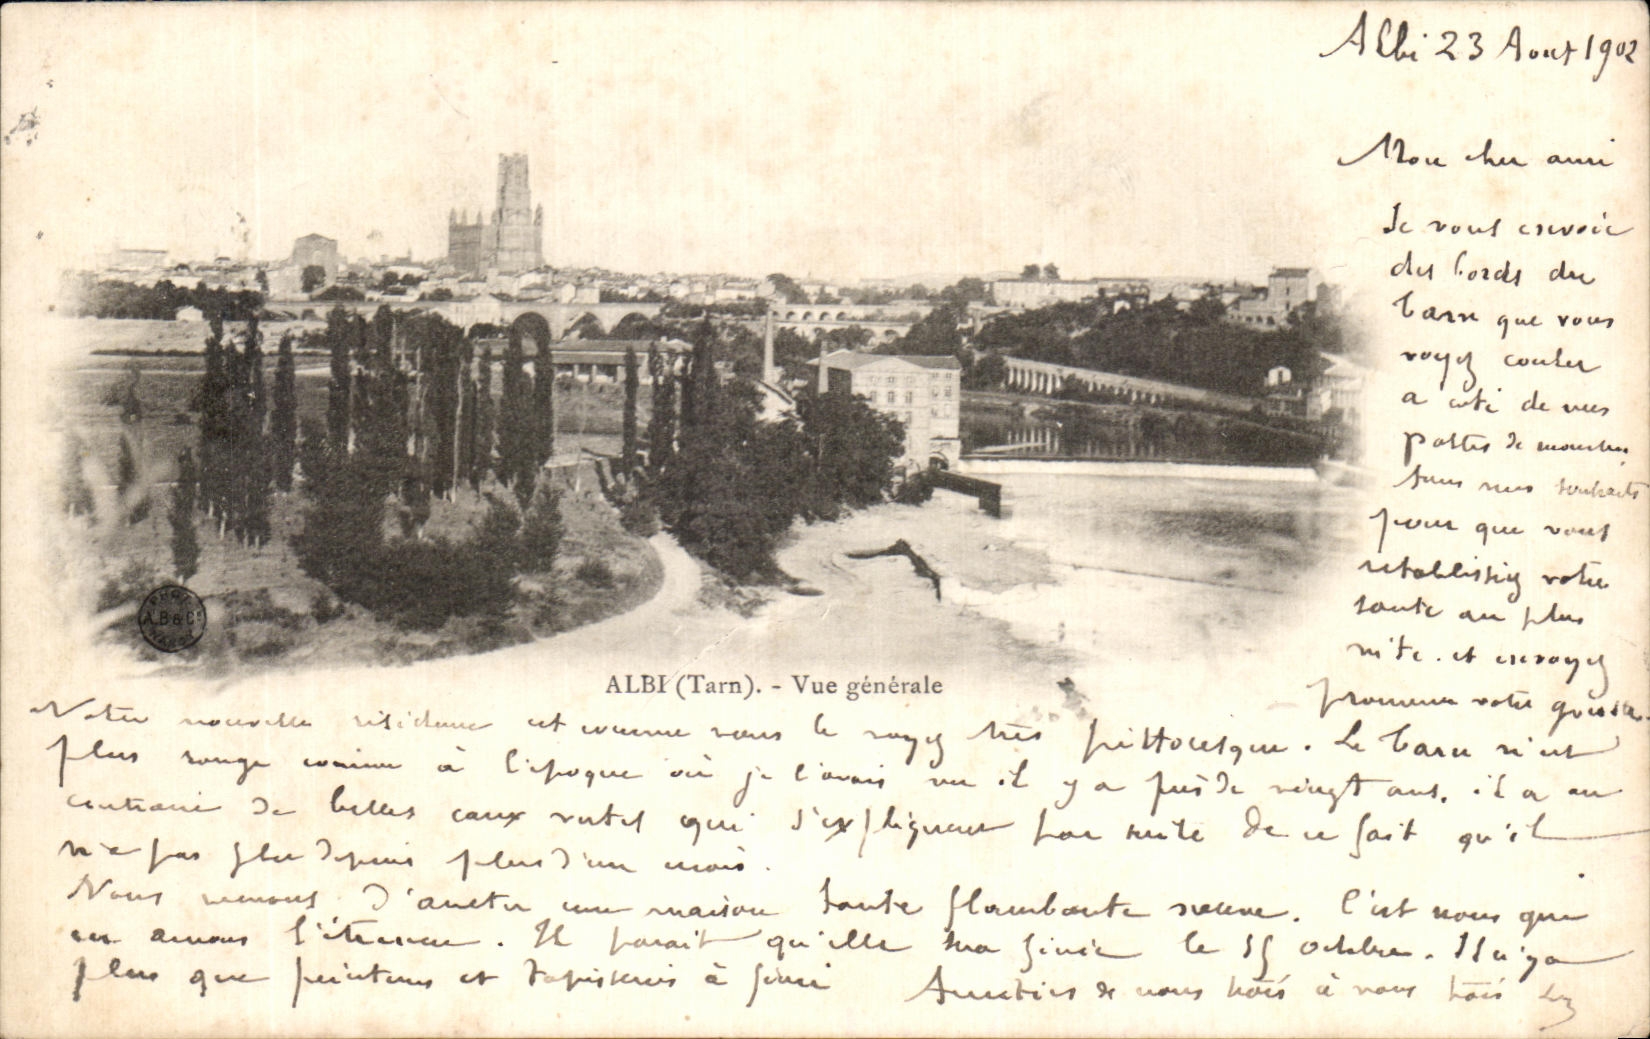 Albi 23 Aout 1902
Mon cher ami
Je vous envoie
des bords du
Tarn que vous
voyez couler
a coté de mes
pattes de mouches
tous mes souhaits
pour que vous
retablissiez votre
santé au plus
vite. et envoyez
promener votre
ALBI (Tarn). - Vue générale
A.B & Cie
NANCY
Notre nouvelle résidence est comme vous le voyez très pittoresque. Le Tarn n'est
plus rouge comme à l'époque où je l'avais vu il y a près de vingt ans. il a au
contraire de belles eaux vertes qui s'expliquent par suite de ce fait qu'il
n'a pas plu depuis plus d'un mois.
Nous venons d'arreter une maison toute flambante neuve. C'est nous qui
en aurons l'étrenne. Il parait qu'elle sera finie le 15 octobre. Il n'y a
plus que peintures et tapisseries à finir Amitiés de nous trois à vous trois